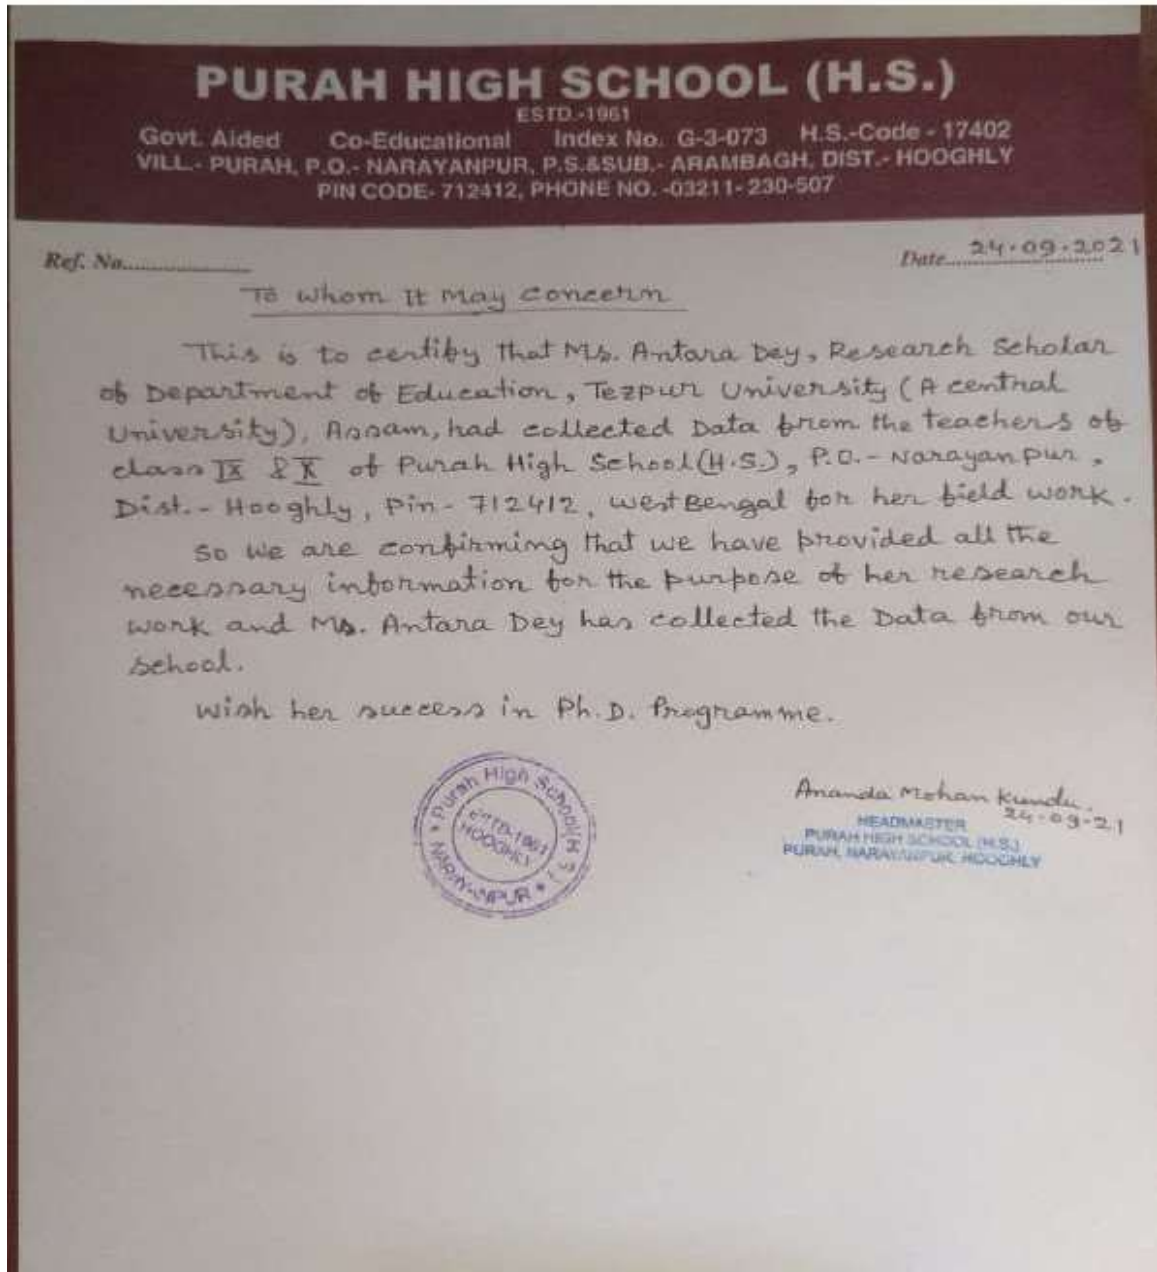 PURAH HIGH SCHOOL (H.S.)
ESTD.-1961
Govt. Aided Co-Educational Index No. G-3-073 H.S.-Code - 17402
VILL.- PURAH, P.O.- NARAYANPUR, P.S.&SUB.- ARAMBAGH, DIST.- HOOGHLY
PIN CODE- 712412, PHONE NO. -03211- 230-507
Ref. No.................... Date 24-09-2021
To Whom It May Concern
This is to certify that Ms. Antara Dey, Research Scholar
of Department of Education, Tezpur University (A central
University), Assam, had collected Data from the teachers of
class IX & X of Purah High School (H.S.), P.O.- Narayanpur,
Dist.- Hooghly, Pin - 712412, West Bengal for her field work.
So we are confirming that we have provided all the
necessary information for the purpose of her research
work and Ms. Antara Dey has collected the Data from our
school.
Wish her success in Ph.D. Programme.
Purah High School (H.S.)
ESTD-1961
HOOGHLY
* NARAYANPUR *
Ananda Mohan Kundu.
24-09-21
HEADMASTER
PURAH HIGH SCHOOL (H.S.)
PURAH, NARAYANPUR, HOOGHLY